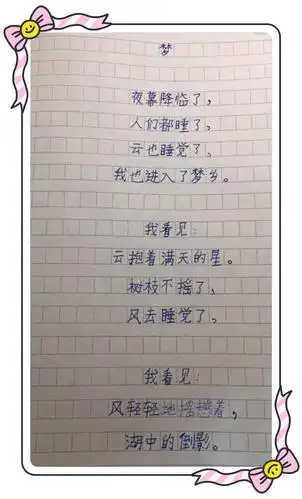 梦
夜幕降临了，
人们都睡了，
云也睡觉了，
我也进入了梦乡。
我看见：
云抱着满天的星。
树枝不摇了，
风去睡觉了，
我看见：
风轻轻地摇撼着，
湖中的倒影。